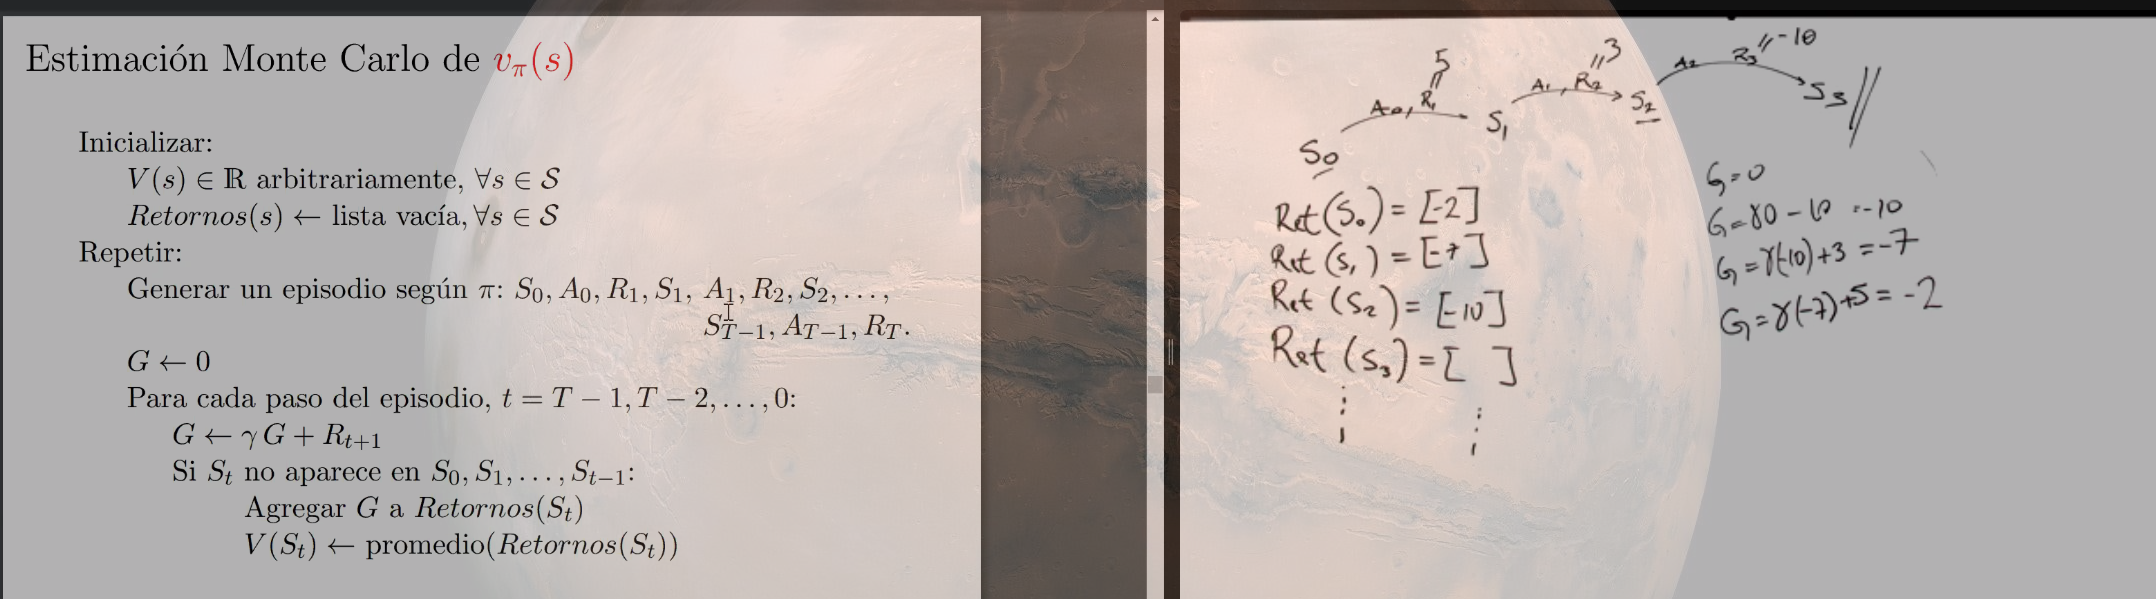 Estimación Monte Carlo de v_π(s)
Inicializar:
V(s) ∈ ℝ arbitrariamente, ∀s ∈ 𝒮
Retornos(s) ← lista vacía, ∀s ∈ 𝒮
Repetir:
Generar un episodio según π: S_0, A_0, R_1, S_1, A_1, R_2, S_2, …,
S_{T−1}, A_{T−1}, R_T.
G ← 0
Para cada paso del episodio, t = T − 1, T − 2, …, 0:
G ← γ G + R_{t+1}
Si S_t no aparece en S_0, S_1, …, S_{t−1}:
Agregar G a Retornos(S_t)
V(S_t) ← promedio(Retornos(S_t))
S_0
A_0, R_1
5
S_1
A_1, R_2
3
S_2
A_2 R_3
-10
S_3
Ret(S_0) = [-2]
Ret(S_1) = [-7]
Ret(S_2) = [-10]
Ret(S_3) = [ ]
G=0
G=γ0-10=-10
G=γ(-10)+3=-7
G=γ(-7)+5=-2